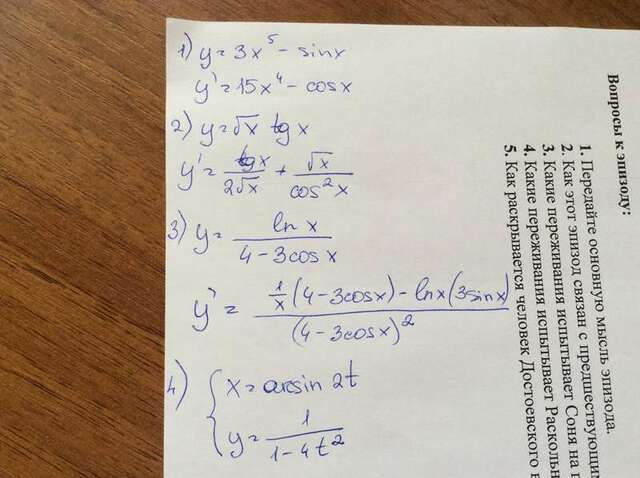 1) y = 3x⁵ - sinx
y' = 15x⁴ - cosx
2) y = √x tg x
y' = tgx/2√x + √x/cos²x
3) y = ln x/4-3cosx
y' = 1/x(4-3cosx) - lnx(3sinx)/(4-3cosx)²
4) { x = arcsin 2t
y = 1/1-4t²
Вопросы к эпизоду:
1. Передайте основную мысль эпизода.
2. Как этот эпизод связан с
3. Какие переживания испытывает Соня на
4. Какие переживания испытывает
5. Как раскрывается человек Достоевского